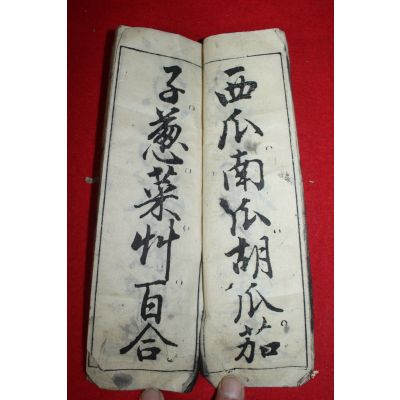 西瓜南瓜胡瓜茄
子葱菜艸百合